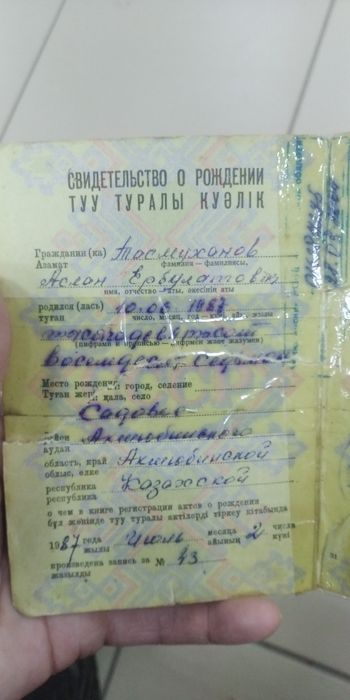 СВИДЕТЕЛЬСТВО О РОЖДЕНИИ
ТУУ ТУРАЛЫ КУӘЛІК
Гражданин (ка) Тасмуханов
Азамат фамилия — фамилиясы,
Аслан Ербулатович
имя, отчество — аты, әкесінің аты
родился (лась) 10.06 1987
туған число, месяц, год — күні, айы, жылы
тысяча девятьсот
(цифрами и прописью) — цифрмен және жазумен)
восемьдесят седьмого
Место рождения: город, селение
Туған жері: қала, село
Садовое
район Актюбинского
аудан
область, край Актюбинской
облыс, өлке
республика Казахской
республика
о чем в книге регистрации актов о рождении
бұл жөнінде туу туралы актілерді тіркеу кітабында
1987 года Июль месяца 2 числа
жылы айының күні
произведена запись за № 43
жазылды